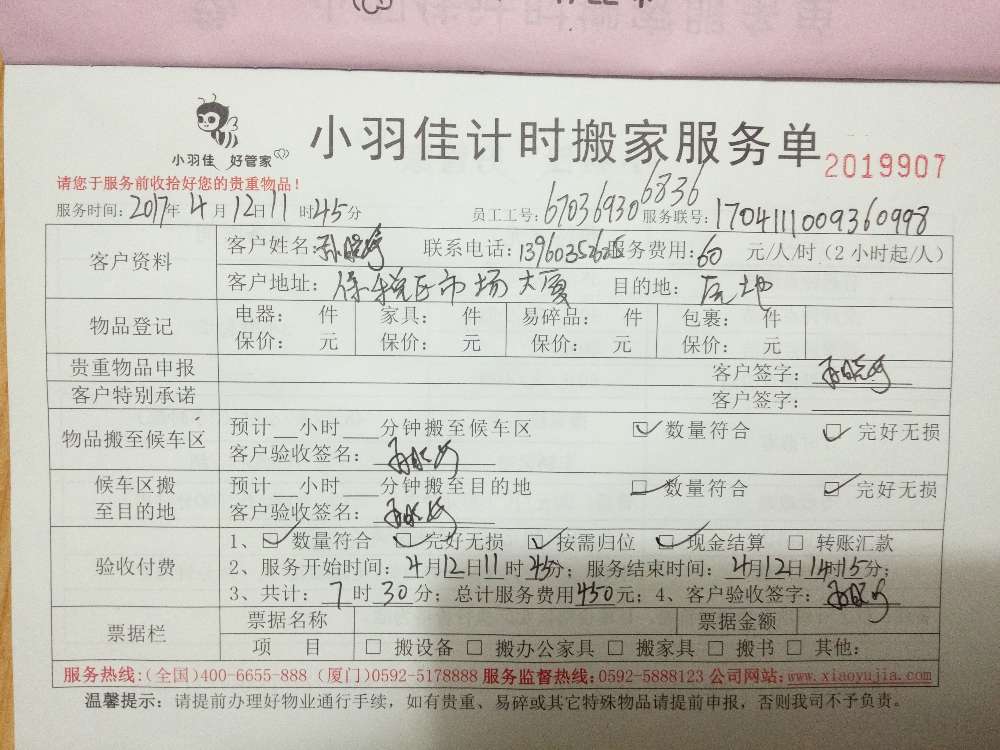 小羽佳 好管家
小羽佳计时搬家服务单
2019907
请您于服务前收拾好您的贵重物品！
服务时间：2017年 4月 12日 11时 45分 员工工号：67036930 6836 服务联号：1704111009360998
客户资料
客户姓名： 联系电话： 服务费用：60 元/人/时（2小时起/人）
客户地址：保税区市场大厦 目的地：
物品登记
电器： 件 家具： 件 易碎品： 件 包裹： 件
保价： 元 保价： 元 保价： 元 保价： 元
贵重物品申报 客户签字：
客户特别承诺 客户签字：
物品搬至候车区
预计__小时___分钟搬至候车区 ☑ 数量符合 ☑ 完好无损
客户验收签名：
候车区搬至目的地
预计__小时___分钟搬至目的地 ☑ 数量符合 ☑ 完好无损
客户验收签名：
验收付费
1、☑ 数量符合 ☑ 完好无损 ☑ 按需归位 ☑ 现金结算 □ 转账汇款
2、服务开始时间：4月12日11时45分；服务结束时间：4月12日14时15分；
3、共计：7时30分；总计服务费用450元；4、客户验收签字：
票据栏
票据名称 票据金额
项 目 □ 搬设备 □ 搬办公家具 □ 搬家具 □ 搬书 □ 其他：
服务热线:(全国)400-6655-888 (厦门)0592-5178888 服务监督热线:0592-5888123 公司网站:www.xiaoyujia.com
温馨提示：请提前办理好物业通行手续，如有贵重、易碎或其它特殊物品请提前申报，否则我司不予负责。